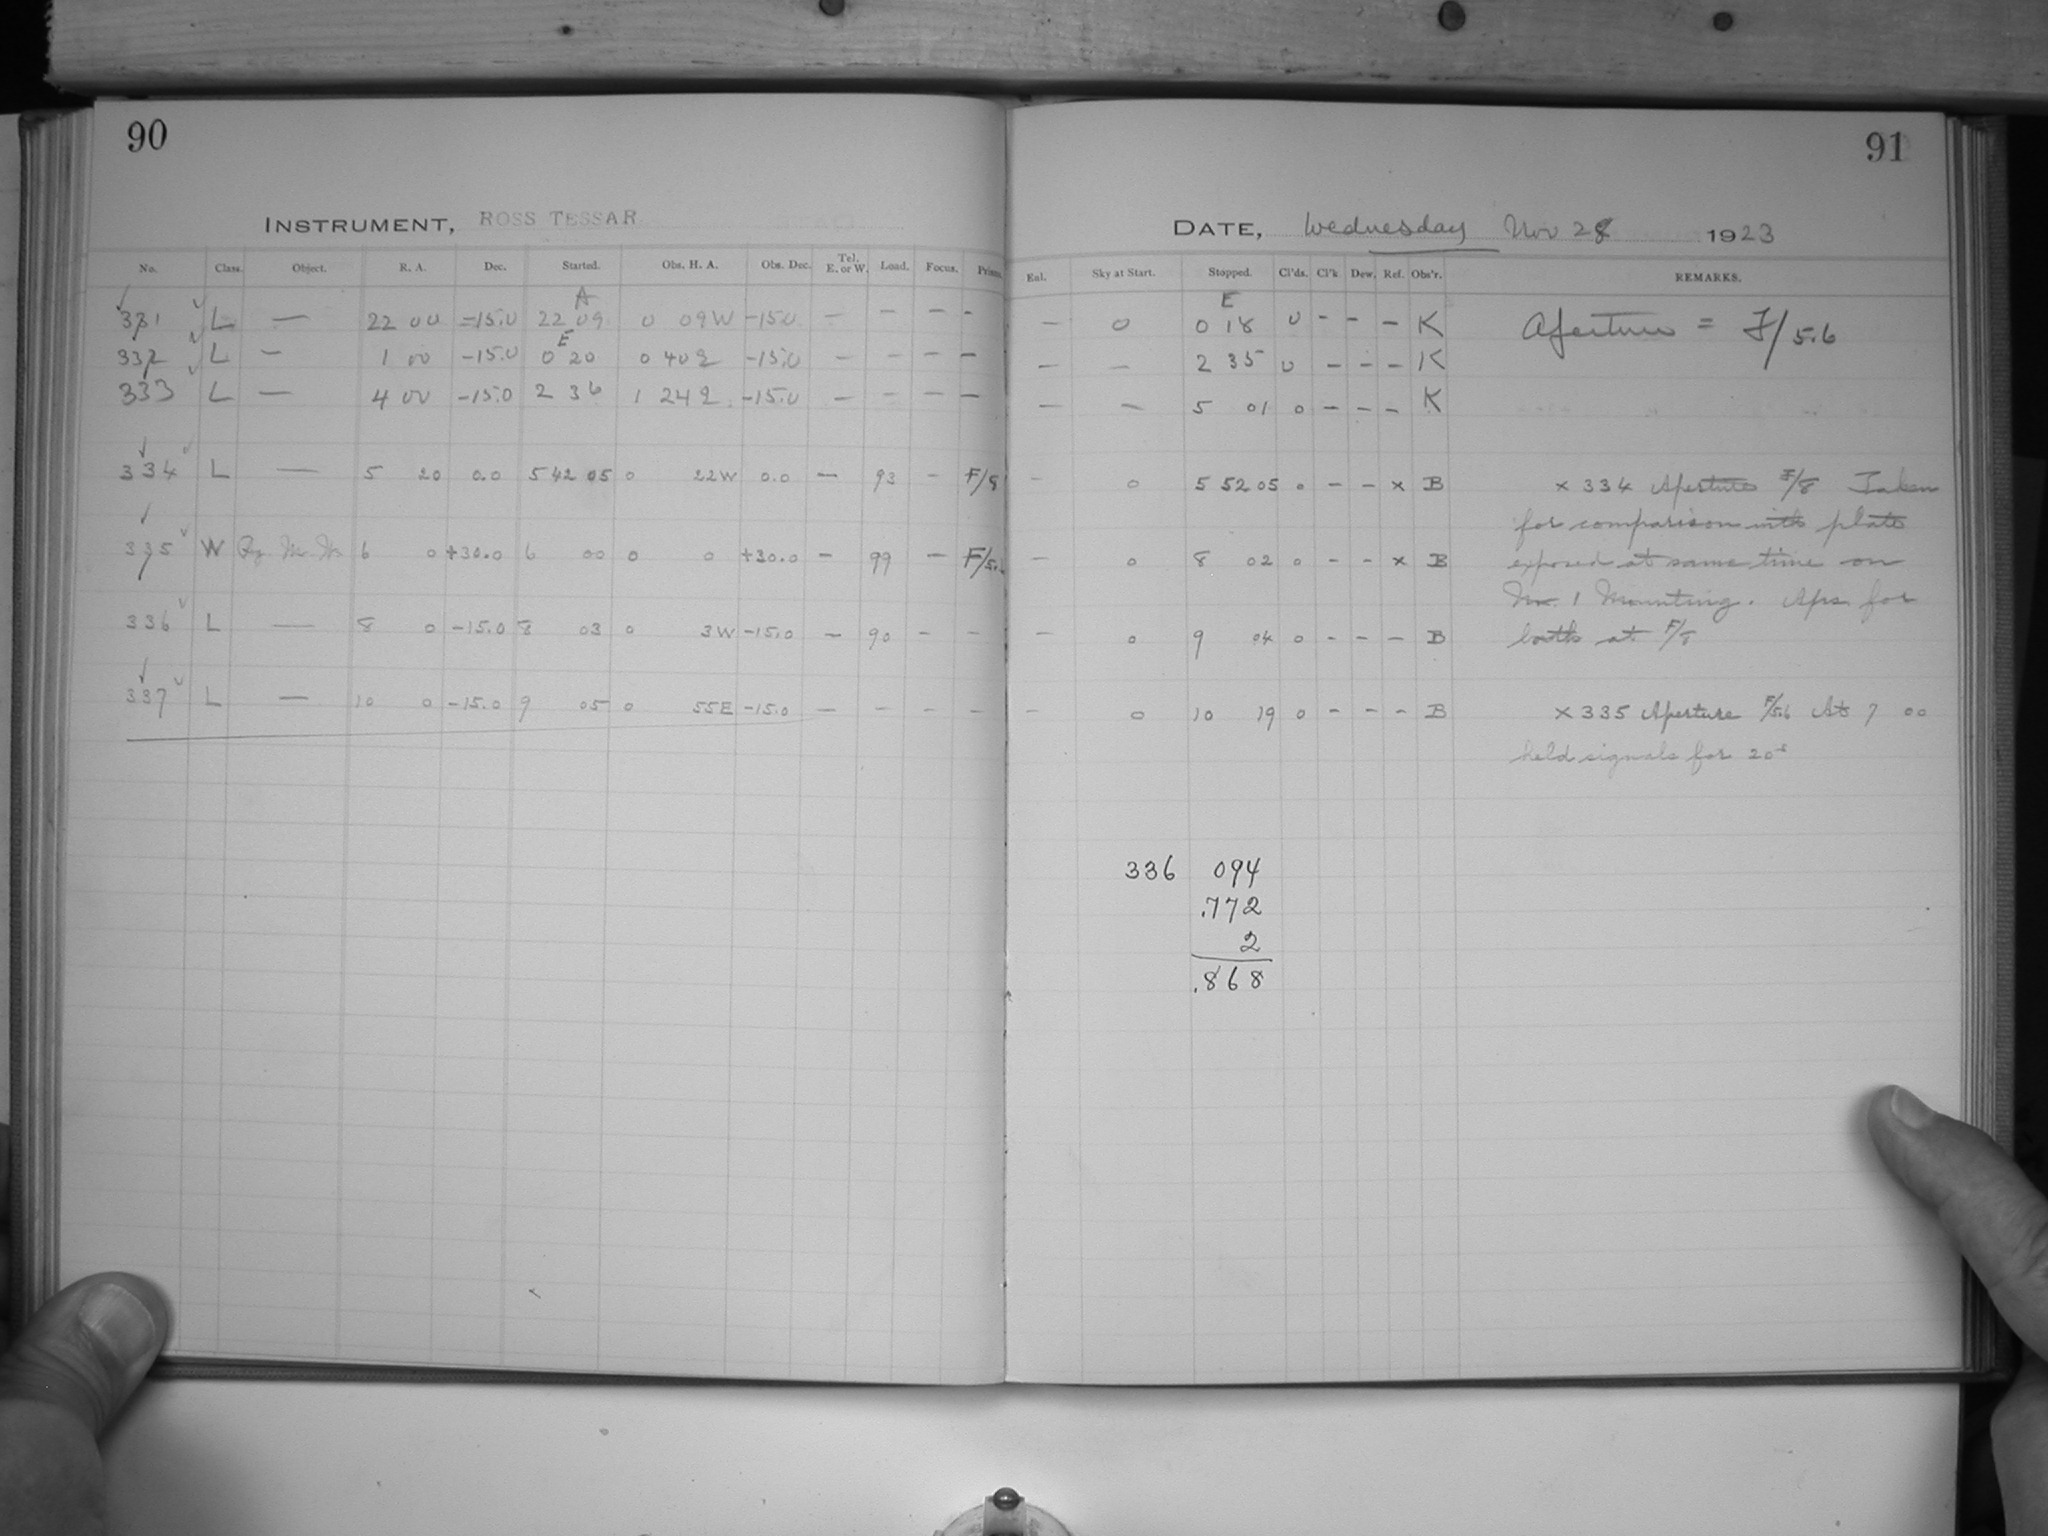 90
INSTRUMENT, ROSS TESSAR
No. Class. Object. R. A. Dec. Started. Obs. H. A. Obs. Dec. Tel. E. or W. Load. Focus. Prism.
A
331 L — 22 00 -15.0 22 09 0 09W -15.0 — — — -
E
332 L — 1 00 -15.0 0 20 0 40E -15.0 — — — —
333 L — 4 00 -15.0 2 36 1 24E -15.0 — — — —
334 L — 5 20 0.0 5 42 05 0 22W 0.0 — 93 - F/8
335 W 6 0 +30.0 6 00 0 0 +30.0 - 99 - F/5.
336 L — 8 0 -15.0 8 03 0 3W -15.0 - 90 - -
337 L — 10 0 -15.0 9 05 0 55E -15.0 - - - -
91
DATE, Wednesday Nov 28 1923
Sky at Start. Stopped. Cl'ds. Cl'k Dew. Ref. Obs'r. REMARKS.
E
— 0 0 18 0 - - - K Aperture = F/5.6
— — 2 35 0 - - - K
— — 5 01 0 - - - K
- 0 5 52 05 0 - - x B x 334 Aperture F/8 Taken
for comparison with plate
- 0 8 02 0 - - x B exposed at same time on
No. 1 Mounting. Aps for
- 0 9 04 0 - - - B both at F/8
- 0 10 19 0 - - - B x 335 Aperture F/5.6 At 7 00
held signals for 20s
336 094
.772
2
.868